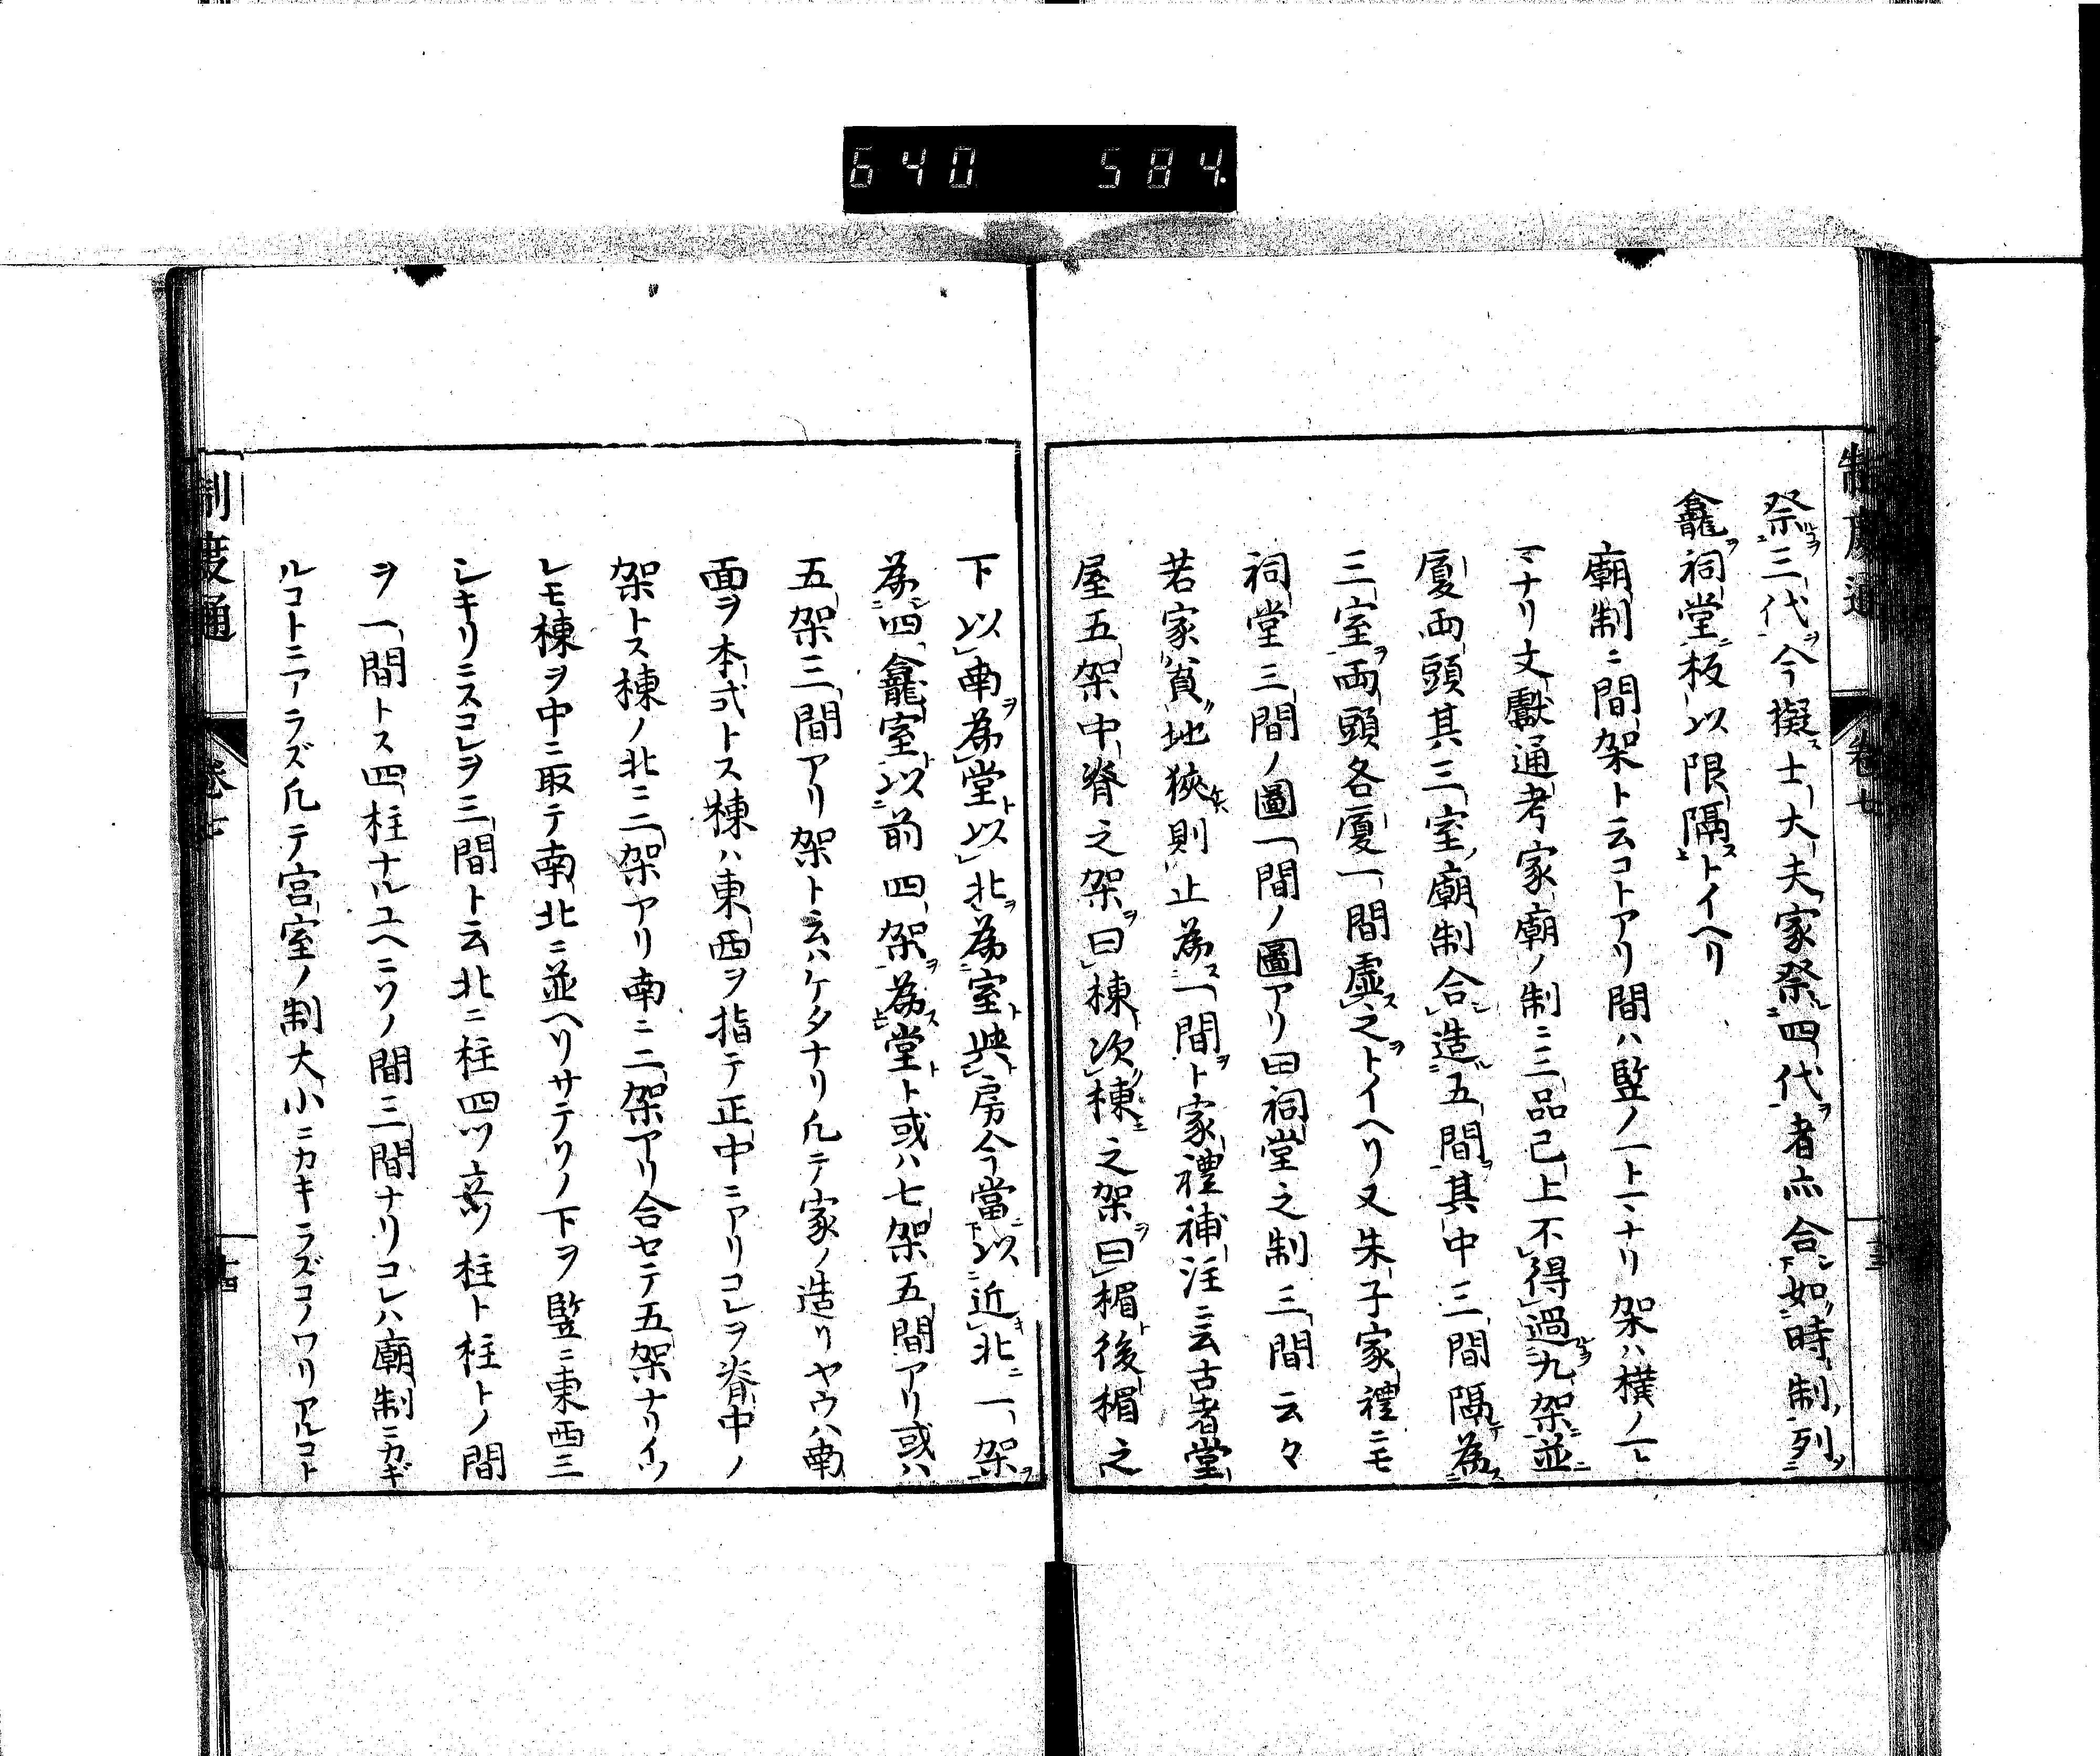 640 584
制度通 卷七 十三
祭三代今擬士大夫家祭四代者亦合如時制列
龕祠堂板以限隔トイヘリ
廟制ニ間架ト云コトアリ間ハ竪ノ一トマナリ架ハ横ノ一ト
マナリ文獻通考家廟ノ制ニ三品已上不得過九架並
廈両頭其三室廟制合造五間其中三間隔為
三室両頭各廈一間虚之トイヘリ又朱子家禮ニモ
祠堂三間ノ圖一間ノ圖アリ曰祠堂之制三間云々
若家貧地狹則止為一間ト家禮補注ニ云古者堂
屋五架中脊之架曰棟次棟之架曰楣後楣之
下以南為堂以北為室與房今當以近北一架
為四龕室以前四架為堂ト或ハ七架五間アリ或ハ
五架三間アリ架ト云ハケタナリ凡テ家ノ造リヤウハ南
面ヲ本式トス棟ハ東西ヲ指テ正中ニアリコレヲ脊中ノ
架トス棟ノ北ニ二架アリ南ニ二架アリ合セテ五架ナリイツ
レモ棟ヲ中ニ取テ南北ニ並ヘリサテリノ下ヲ竪ニ東西三
シキリニスコレヲ三間ト云北ニ柱四ツ立ツ柱ト柱トノ間
ヲ一間トス四柱ナルユヘニソノ間三間ナリコレハ廟制ニカギ
ルコトニアラズ凡テ宮室ノ制大小ニカキラズコノワリアルコト
制度通 卷七 十四